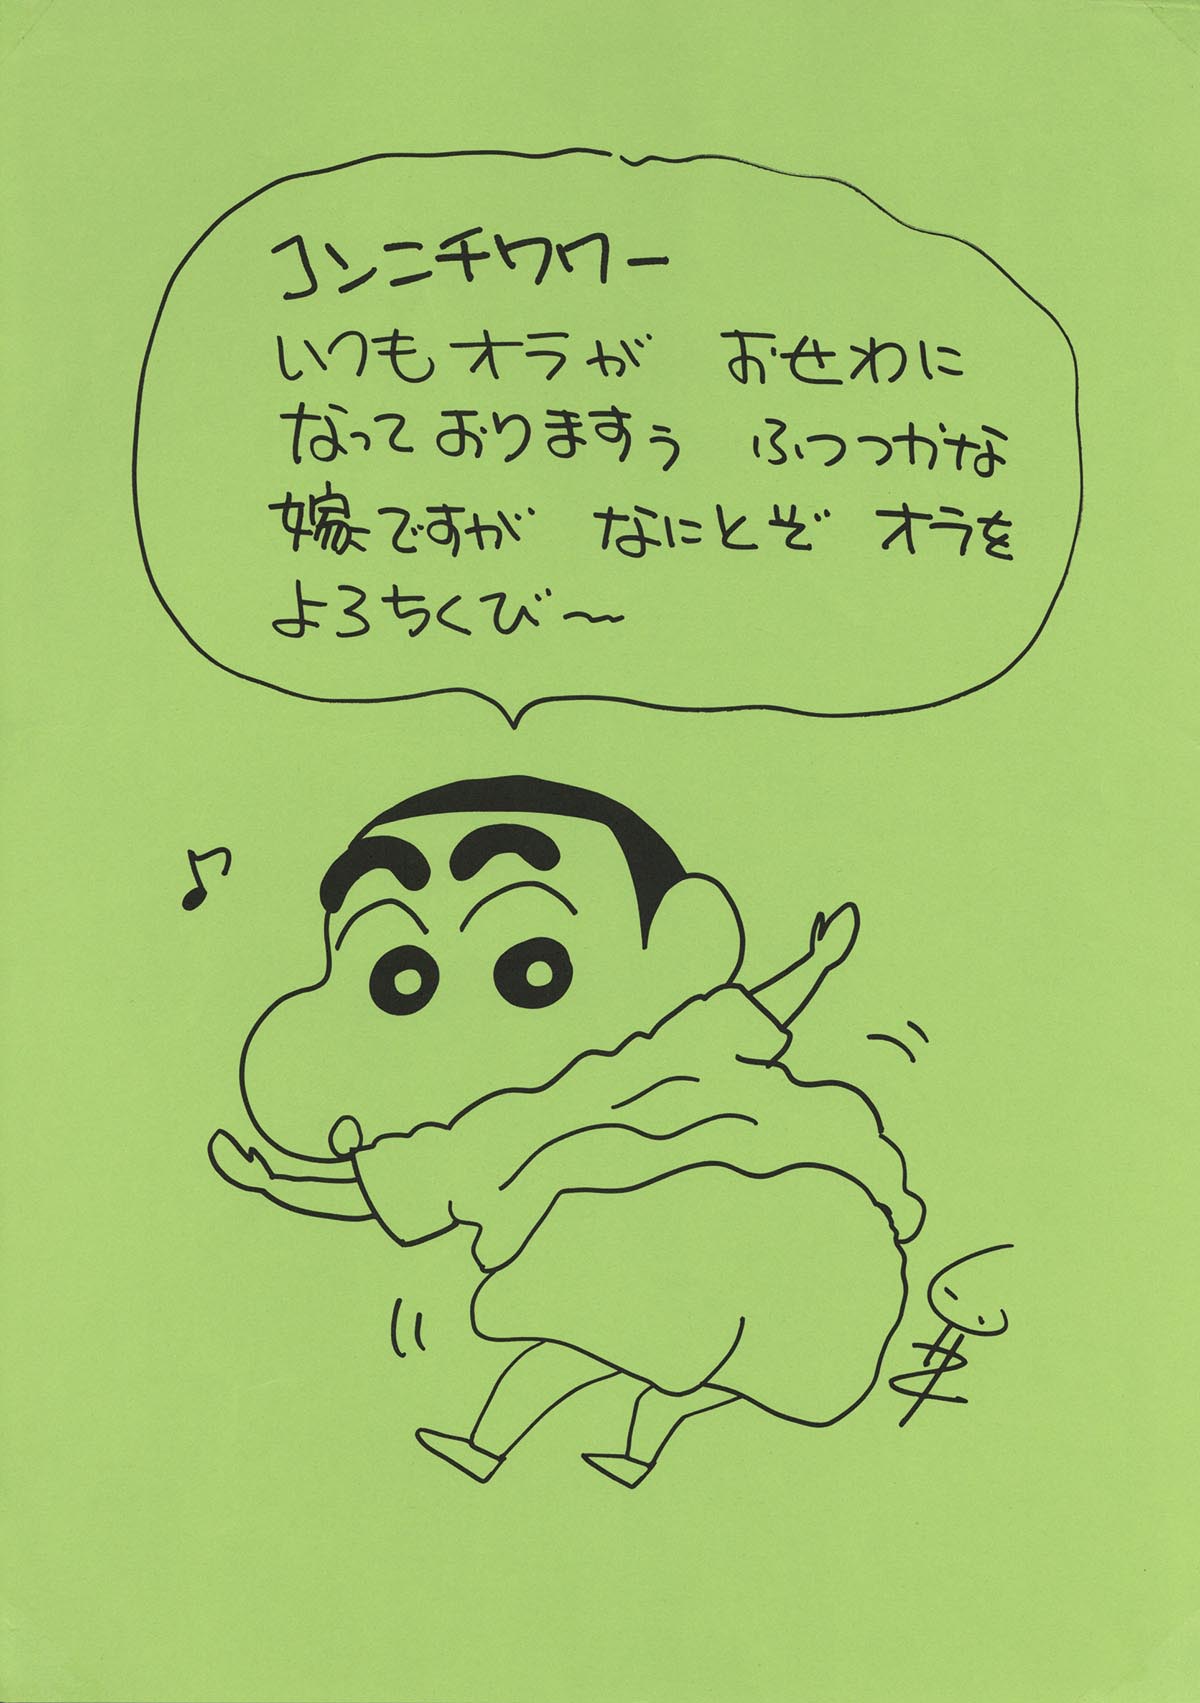 コンニチワワー
いつもオラが おせわに
なっておりますぅ ふつつかな
嫁ですが なにとぞ オラを
よろちくび～